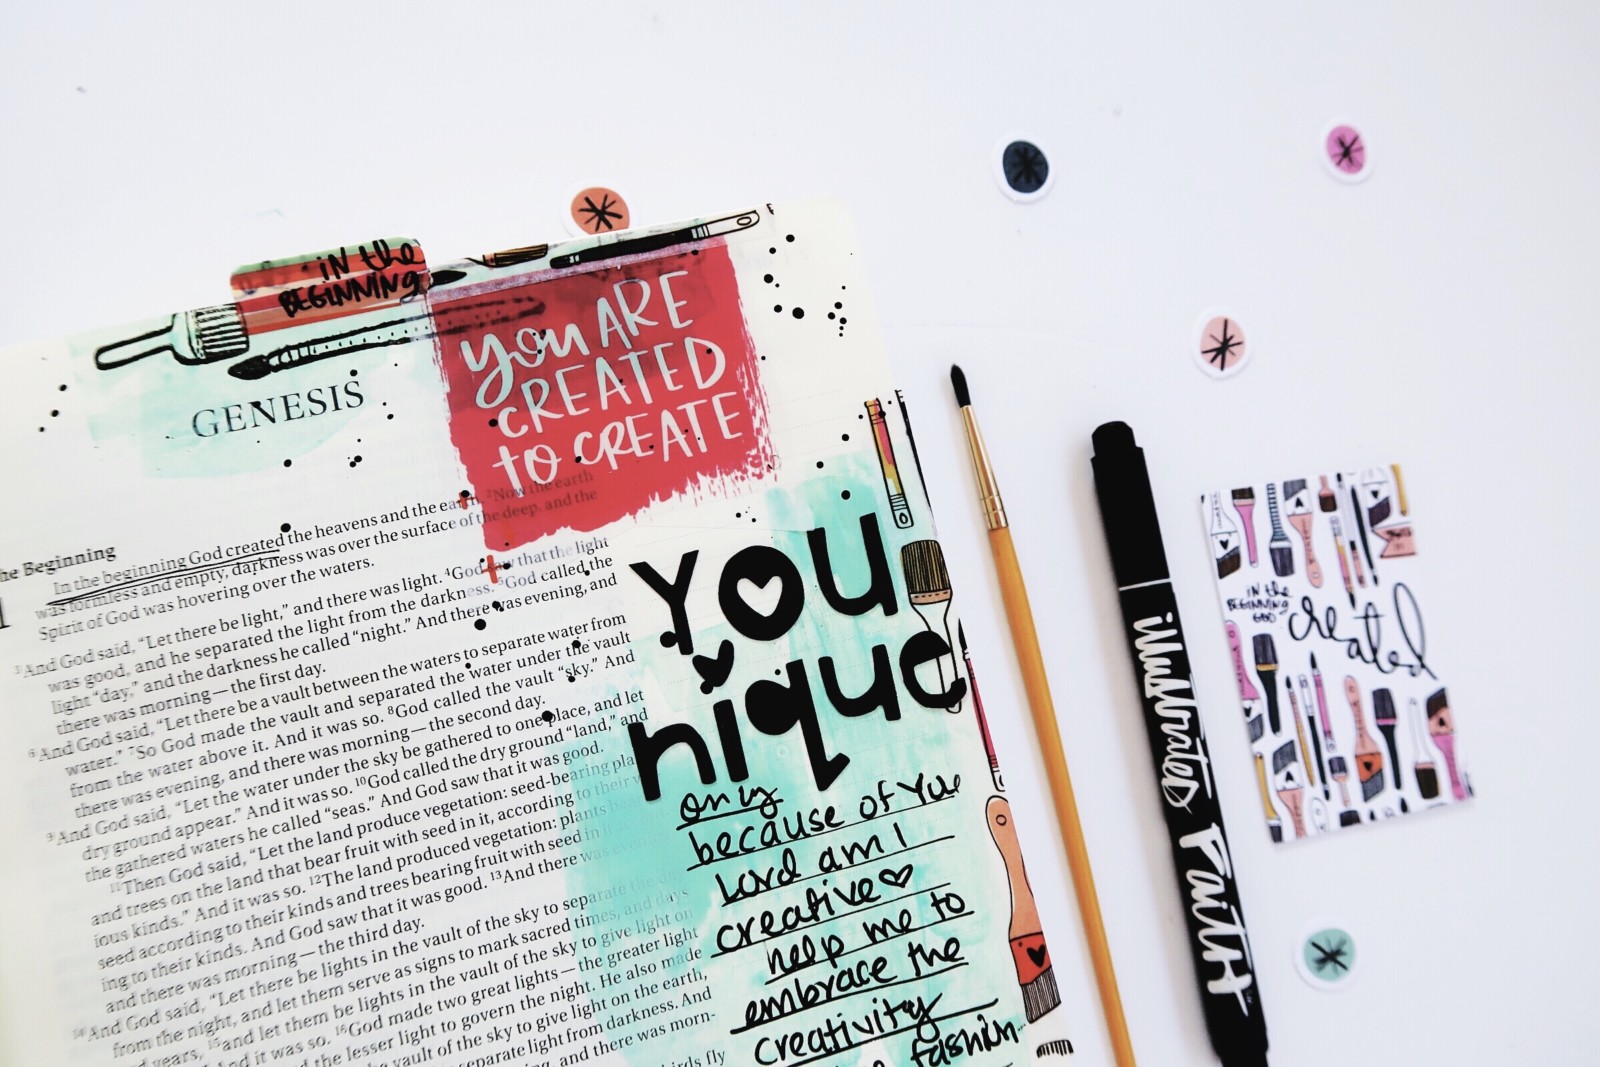 in the
BEGINNING
GENESIS
you ARE
CREATED
to CREATE
he Beginning
In the beginning God created the heavens and the earth. ²Now the earth
was formless and empty, darkness was over the surface of the deep, and the
Spirit of God was hovering over the waters.
³And God said, “Let there be light,” and there was light. ⁴God saw that the light
was good, and he separated the light from the darkness. ⁵God called the
light “day,” and the darkness he called “night.” And there was evening, and
there was morning—the first day.
⁶And God said, “Let there be a vault between the waters to separate water from
water.” ⁷So God made the vault and separated the water under the vault
from the water above it. And it was so. ⁸God called the vault “sky.” And
there was evening, and there was morning—the second day.
⁹And God said, “Let the water under the sky be gathered to one place, and let
dry ground appear.” And it was so. ¹⁰God called the dry ground “land,” and
the gathered waters he called “seas.” And God saw that it was good.
¹¹Then God said, “Let the land produce vegetation: seed-bearing pla
and trees on the land that bear fruit with seed in it, according to their v
ious kinds.” And it was so. ¹²The land produced vegetation: plants bea
seed according to their kinds and trees bearing fruit with seed in it
ing to their kinds. And God saw that it was good. ¹³And there was evenin
and there was morning—the third day.
¹⁴And God said, “Let there be lights in the vault of the sky to separate the day
from the night, and let them serve as signs to mark sacred times, and days
d years, ¹⁵and let them be lights in the vault of the sky to give light on
And it was so. ¹⁶God made two great lights—the greater light
d the lesser light to govern the night. He also made
e vault of the sky to give light on the earth,
separate light from darkness. And
, and there was morn-
birds fly
You
nique
only
because of You
Lord am I
creative
help me to
embrace the
creativity
fashion
illustrated Faith
in the
BEGINNING
GOD
created